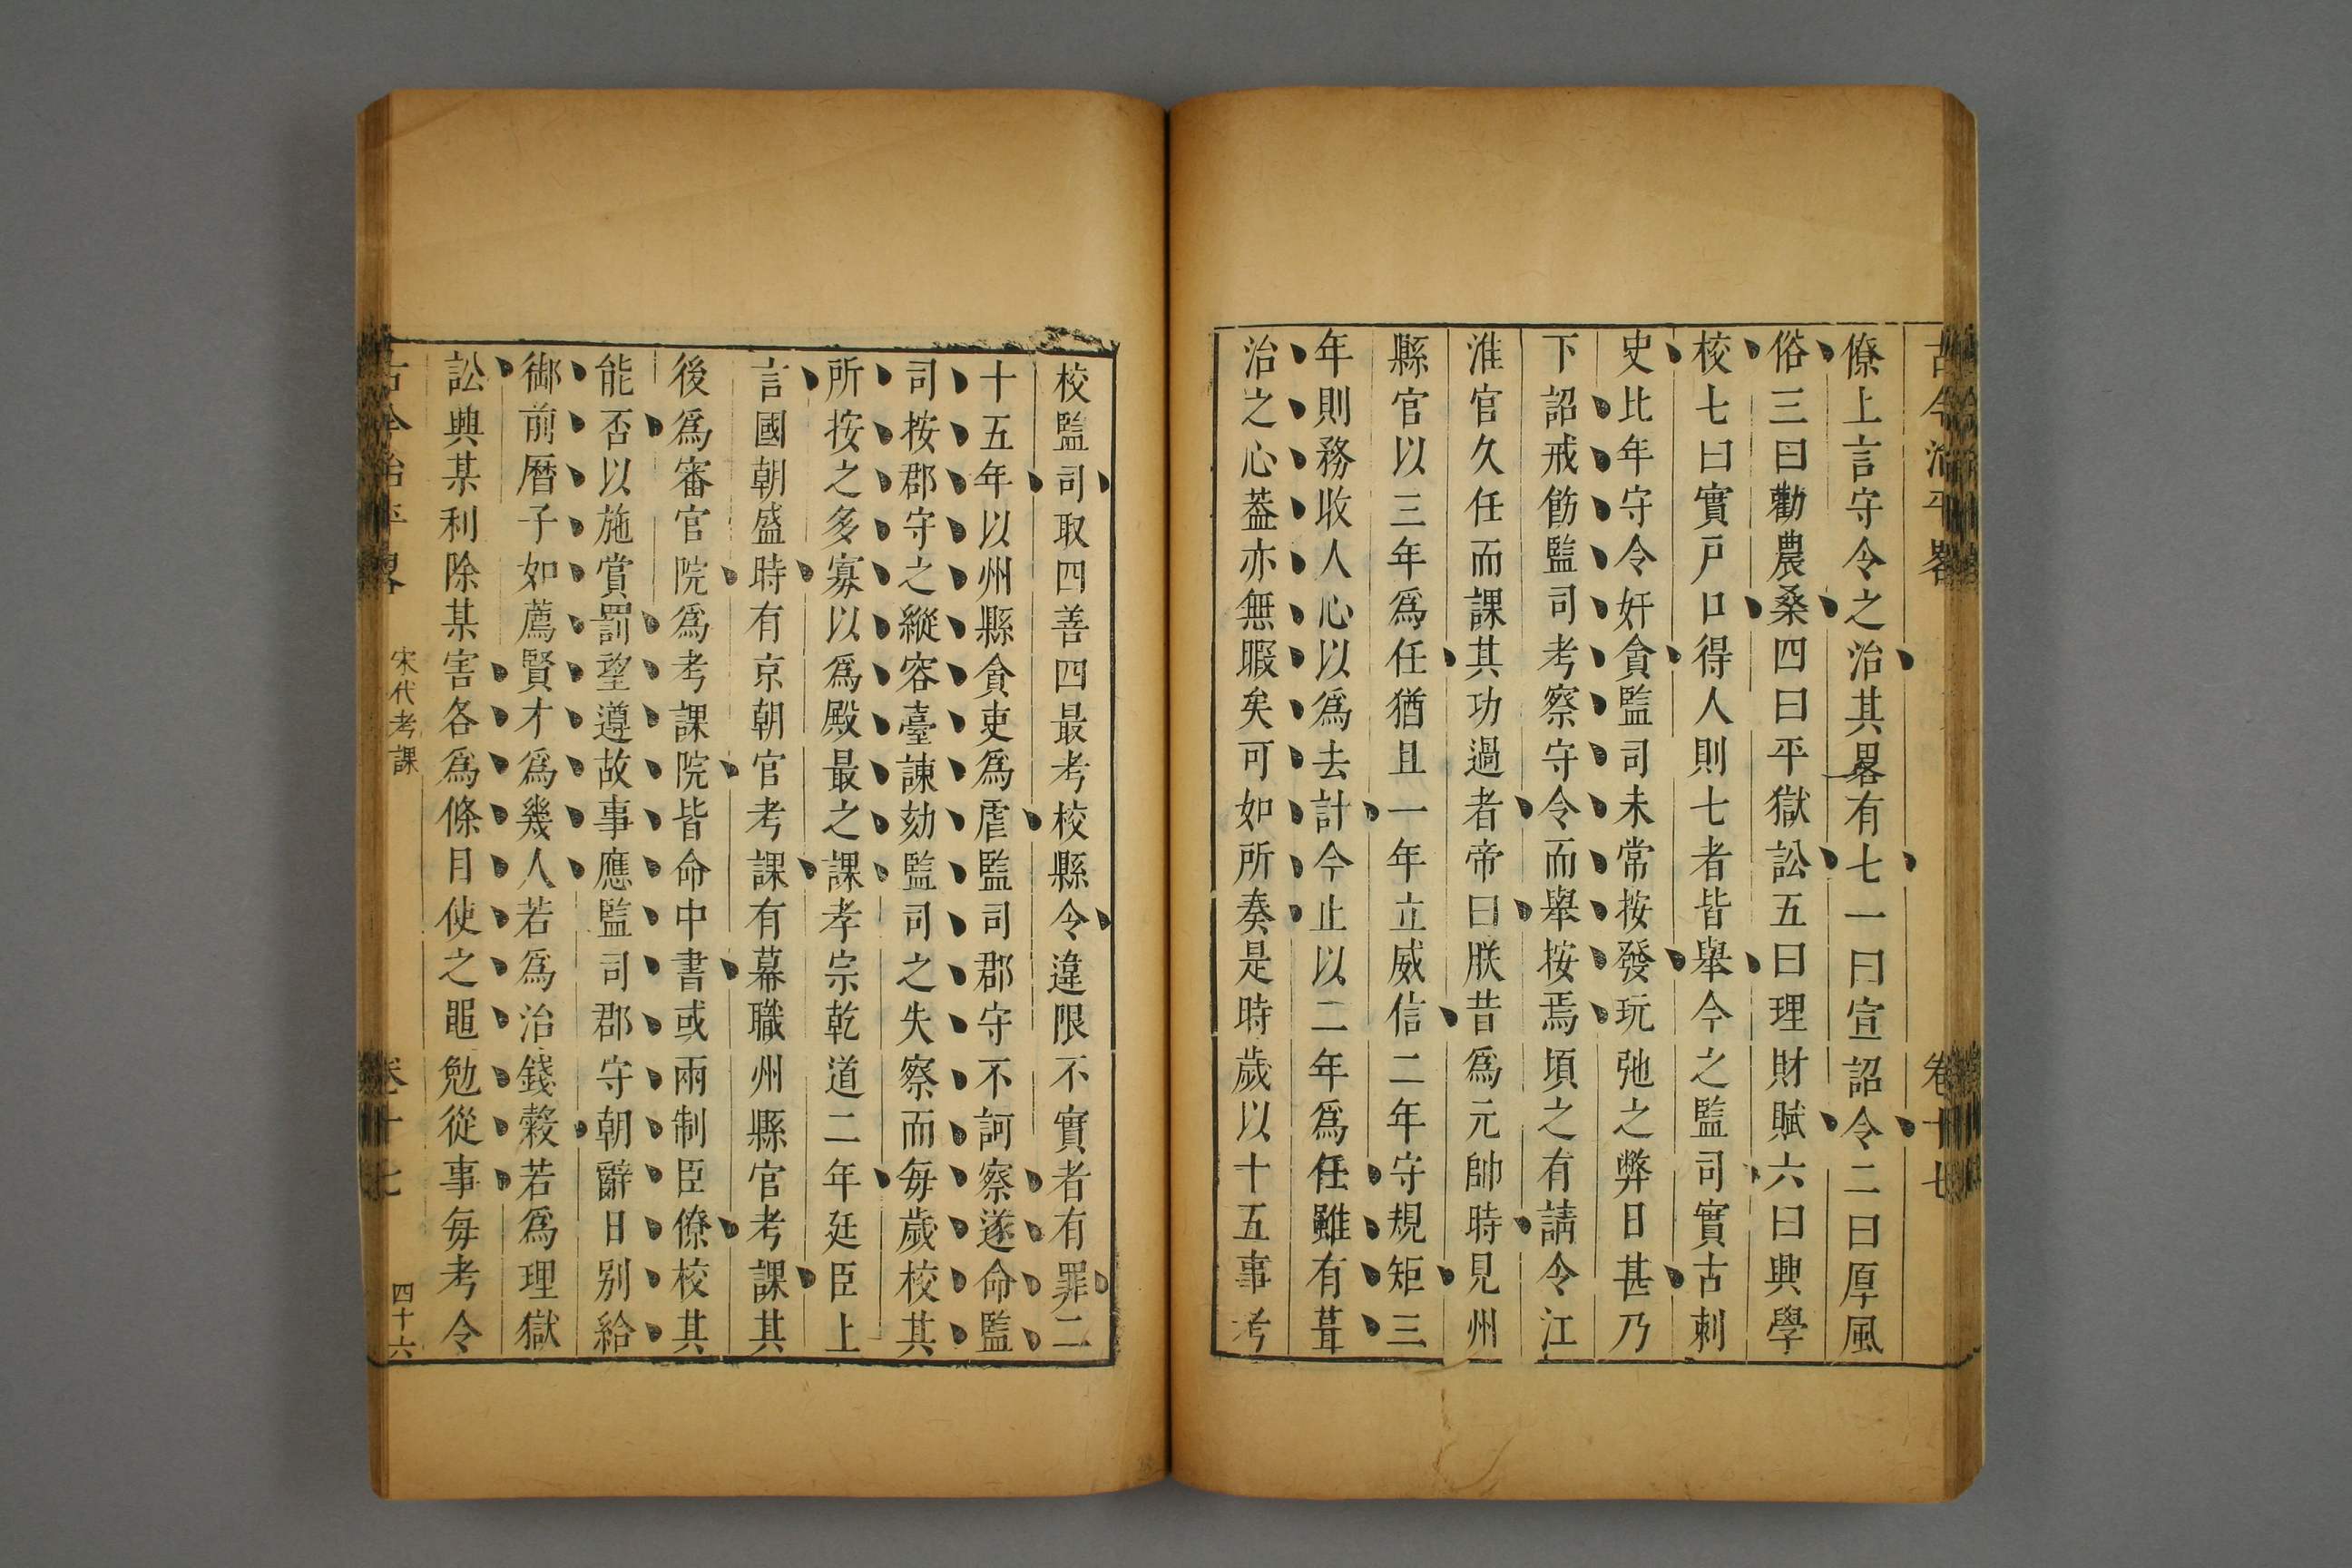 古今治平畧 卷十七
僚上言守令之治其畧有七一曰宣詔令二曰厚風
俗三曰勸農桑四曰平獄訟五曰理財賦六曰興學
校七曰實戸口得人則七者皆舉今之監司實古刺
史比年守令奸貪監司未常按發玩弛之弊日甚乃
下詔戒飭監司考察守令而舉按焉頃之有請令江
淮官久任而課其功過者帝曰朕昔爲元帥時見州
縣官以三年爲任猶且一年立威信二年守規矩三
年則務收人心以爲去計今止以二年爲任雖有葺
治之心葢亦無暇矣可如所奏是時歲以十五事考
校監司取四善四最考校縣令違限不實者有罪二
十五年以州縣貪吏爲虐監司郡守不訶察遂命監
司按郡守之縱容臺諫劾監司之失察而每歲校其
所按之多寡以爲殿最之課孝宗乾道二年廷臣上
言國朝盛時有京朝官考課有幕職州縣官考課其
後爲審官院爲考課院皆命中書或兩制臣僚校其
能否以施賞罰望遵故事應監司郡守朝辭日别給
御前曆子如薦賢才爲幾人若爲治錢穀若爲理獄
訟興某利除某害各爲條目使之黽勉從事每考令
古今治平畧 宋代考課 卷十七 四十六